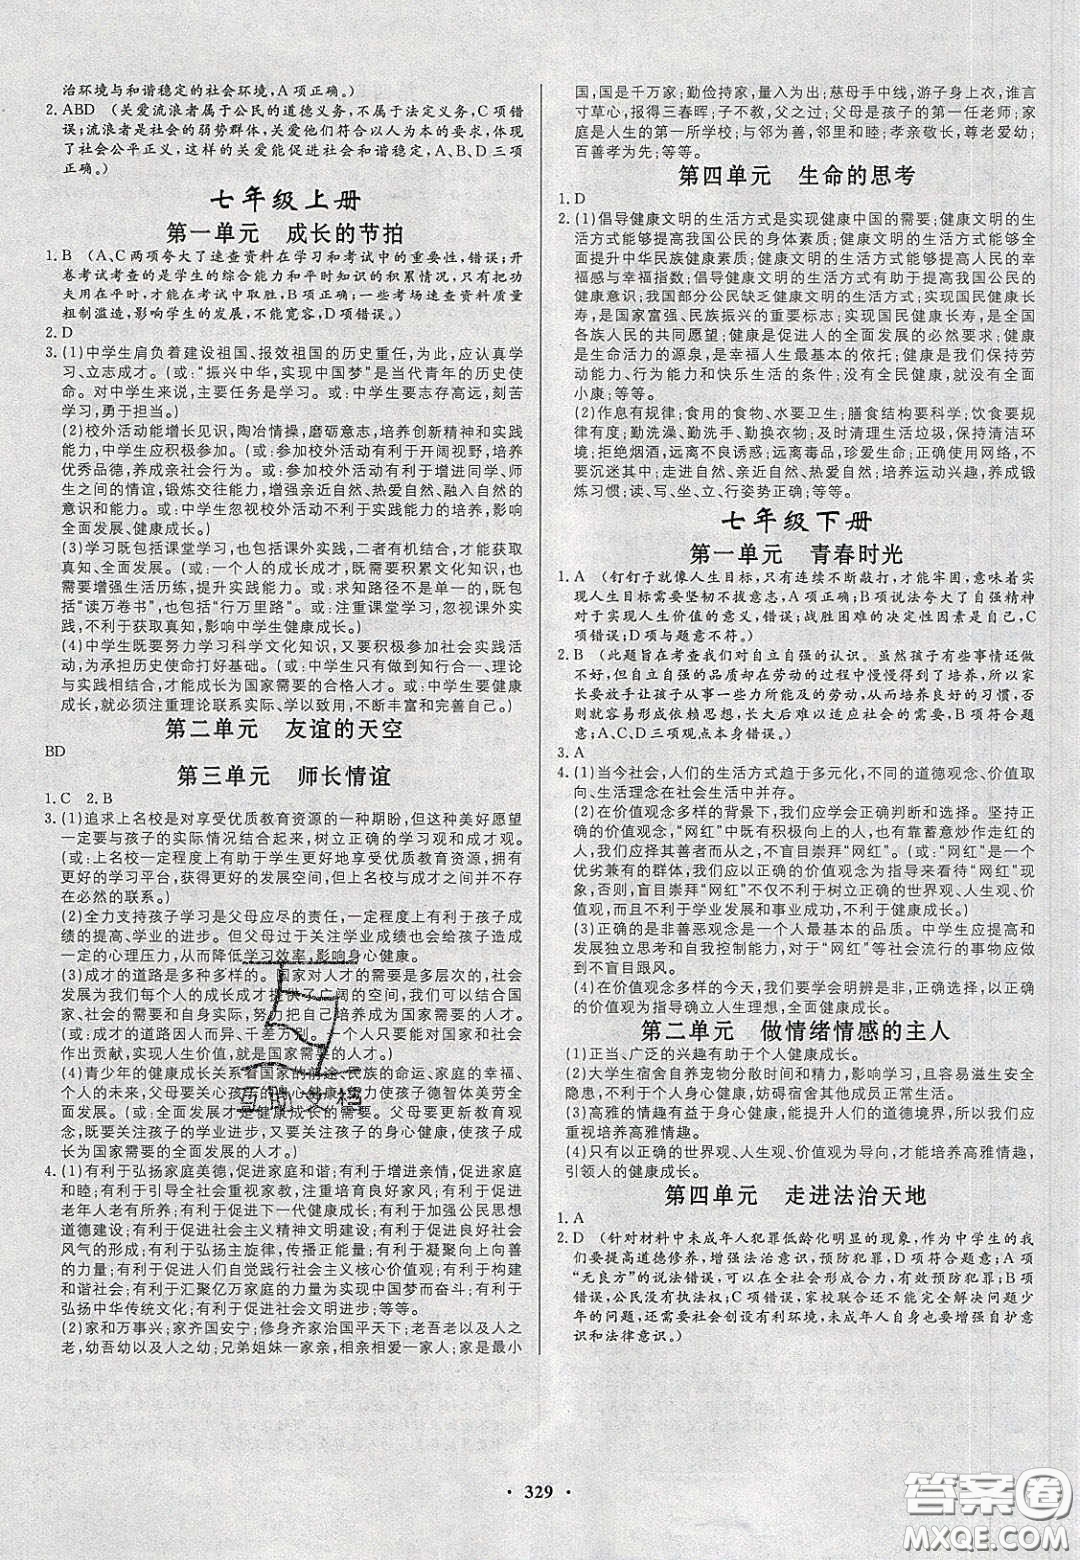 治环境与和谐稳定的社会环境,A项正确。)
2. ABD (关爱流浪者属于公民的道德义务,不属于法定义务,C项错
误;流浪者是社会的弱势群体,关爱他们符合以人为本的要求,体现
了社会公平正义,这样的关爱能促进社会和谐稳定,A、B、D三项
正确。)
七年级上册
第一单元 成长的节拍
1. B (A、C两项夸大了速查资料在学习和考试中的重要性,错误;开
卷考试考查的是学生的综合能力和平时知识的积累情况,只有把功
夫用在平时,才能在考试中取胜,B项正确;一些考场速查资料质量
粗制滥造,影响学生的发展,不能宽容,D项错误。)
2. D
3. (1)中学生肩负着建设祖国、报效祖国的历史重任,为此,应认真学
习、立志成才。(或:“振兴中华,实现中国梦”是当代青年的历史使
命。对中学生来说,主要任务是学习。或:中学生要志存高远,刻苦
学习,勇于担当。)
(2)校外活动能增长见识,陶冶情操,磨砺意志,培养创新精神和实践
能力,中学生应积极参加。(或:校外活动有利于开阔视野,培养
优秀品德,养成亲社会行为。或:校外活动有利于增进同学、师
生之间的情谊,锻炼交往能力,增强亲近自然、热爱自然、融入自然的
意识和能力。或:中学生忽视校外活动不利于实践能力的培养,影响
全面发展、健康成长。)
(3)学习既包括课堂学习,也包括课外实践,二者有机结合,才能获取
真知、全面发展。(或:一个人的成长成才,既需要积累文化知识,也
需要丰富生活历练,提升实践能力。或:求知路径不是单一的,既包
括“读万卷书”,也包括“行万里路”。或:注重课堂学习,忽视课外实
践,不利于获取真知,影响中学生健康成长。)
(4)中学生既要努力学习科学文化知识,又要积极参加社会实践活
动,为承担历史使命打好基础。(或:中学生只有做到知行合一、理论
与实践结合,才能成长为国家需要的合格人才。或:中学生要健康成
长,就必须注重理论联系实际、学以致用,不断丰富和完善自我。)
第二单元 友谊的天空
BD
第三单元 师长情谊
1. C 2. B
3. (1)追求上名校是对享受优质教育资源的一种期盼,但这种美好愿望
一定要与孩子的实际情况结合起来,树立正确的学习观和成才观。
(或:上名校一定程度上有助于学生更好地享受优质教育资源,拥有
更好的学习平台,获得更好的发展空间,但上名校与成才之间并不存
在必然的联系。)
(2)全力支持孩子学习是父母应尽的责任,一定程度上有利于孩子成
绩的提高、学业的进步。但父母过于关注学业成绩也会给孩子带来
一定的心理压力,从而降低学习效率,影响身心健康。
(3)成才的道路是多种多样的。国家对人才的需要是多层次的,社会
发展为我们每个人的成长成才提供了广阔的空间,我们要结合国
家、社会的需要和自身实际,努力把自己培养成为国家需要的人才。
(或:成才的道路因人而异、千差万别。一个人只要能对国家和社会
作出贡献,实现人生价值,就是国家需要的人才。)
(4)青少年的健康成长关系着国家的前途、民族的命运、家庭的幸福、
个人的未来,父母要关心孩子的身心健康,努力使孩子德智体美劳全
面发展,成为健康成长的需要。(或:父母要更新教育观
念,既要关注孩子的学业进步,又要关注孩子的身心健康,使孩子成
长为国家需要的全面发展的人才。)
4. (1)有利于弘扬家庭美德,促进家庭和谐;有利于增进亲情,促进家庭
和睦;有利于推动全社会重视家教,注重培育良好家风;有利于促进
老年人老有所养;有利于促进下一代健康成长;有利于加强公民思想
道德建设;有利于促进社会主义精神文明建设;有利于促进良好社会
风气的形成;有利于弘扬主旋律,传播正能量;有利于凝聚向上向善
的力量;有利于促进人们自觉践行社会主义核心价值观;有利于构建
和谐社会;有利于汇聚亿万家庭的力量为实现中国梦而奋斗;有利于
弘扬中华传统文化;有利于促进社会文明进步;等等。
(2)家和万事兴;家齐国安宁;修身齐家治国平天下;老吾老以及人之
老,幼吾幼以及人之幼;兄弟姐妹一家亲,相亲相爱一家人;家是最小
国,国是千万家;勤俭持家,量入为出;慈母手中线,游子身上衣,谁言
寸草心,报得三春晖;子不教,父之过;父母是孩子的第一任老师;家
庭是人生的第一所学校;与邻为善,邻里和睦;孝亲敬长,尊老爱幼;
百善孝为先;等等。
第四单元 生命的思考
1. D
2. (1)倡导健康文明的生活方式是实现健康中国的需要;健康文明的生
活方式能够提高我国公民的身体素质;健康文明的生活方式能够全
面提升中华民族健康素质;健康文明的生活方式能够提高人民的幸
福感与幸福指数;倡导健康文明的生活方式有助于提高我国公民的
健康意识;我国部分公民缺乏健康文明的生活方式;实现国民健康长
寿,是国家富强、民族振兴的重要标志;实现国民健康长寿,是全国
各族人民的共同愿望;健康是促进人的全面发展的必然要求;健
康是生命活力的源泉,是幸福人生最基本的依托;健康是我们保持劳
动能力、行为能力和快乐生活的条件;没有全民健康,就没有全面
小康;等等。
(2)作息有规律;食用的食物、水要卫生;膳食结构要科学;饮食要规
律有度;勤洗澡、勤洗手、勤换衣物;及时清理生活垃圾,保持清洁环
境;拒绝烟酒,远离不良诱惑;远离毒品,珍爱生命;正确使用网络,不
要沉迷其中;走进自然、亲近自然、热爱自然;培养运动兴趣,养成锻
炼习惯;读、写、坐、立、行姿势正确;等等。
七年级下册
第一单元 青春时光
1. A (钉钉子就像人生目标,只有连续不断敲打,才能牢固,意味着实
现人生目标需要坚韧不拔意志,A项正确;B项说法夸大了自强精神
对于实现人生价值的意义,错误;战胜困难的决定性因素是自己,C
项错误;D项与题意不符。)
2. B (此题旨在考查我们对自立自强的认识。虽然孩子有些事情还做
不好,但自立能力却是在劳动的过程中慢慢得到了培养,所以
家长要放手让孩子从事一些力所能及的劳动,培养良好的习惯,否
则就容易形成依赖思想,长大后难以适应社会的需要,B项符合
题意;A、C、D三项观点本身错误。)
3. A
4. (1)当今社会,人们的生活方式趋于多元化,不同的道德观念、价值取
向、生活理念随之产生。
(2)在价值观念多样的背景下,我们应学会正确判断和选择。坚持正
确的价值观念,“网红”中既有积极向上的人,也有靠蓄意炒作走红的
人,我们应择其善者而从之,不盲目崇拜“网红”。(或:“网红”是一个
优劣兼有的群体,我们应以正确的价值观念进行理性的选择。或:盲
目崇拜“网红”会影响我们形成正确的世界观、人生观、价
值观,不利于学业发展和事业成功,不利于健康成长。)
(3)正确的是非善恶观念是一个人最基本的品质。中学生应提高和
发展独立思考和自我控制能力,对于“网红”等社会流行的事物应做
到不盲目跟风。
(4)在价值观念多样的今天,我们要学会明辨是非,坚持以正确
的价值观为指导确立人生理想,全面健康成长。
第二单元 做情绪情感的主人
(1)正当、广泛的兴趣有助于个人健康成长。
(2)大学生宿舍自养宠物分散时间和精力,影响学习,且容易滋生安全
隐患,不利于个人身心健康,妨碍宿舍其他成员正常生活。
(3)高雅的情趣有益于身心健康,能提升人们的道德境界,所以我们应
重视培养高雅情趣。
(4)只有以正确的世界观、人生观、价值观为导向,才能培养高雅情趣,
引领人的健康成长。
第四单元 走进法治天地
1. A
2. D (针对材料中未成年人犯罪低龄化明显的现象,作为中学生的我
们要提高道德修养,增强法治意识,预防犯罪,D项符合题意;A项
“无良方”的说法错误,可以在全社会形成合力,有效预防犯罪;B项
错误,公民没有执法权;C项错误,家校联合并不能彻底解决问题少
年的问题,还需要社会创设有利环境,未成年人自身要增强自护意
识和法律意识。)
· 329 ·
互助文档
答案圈
MXQE.COM